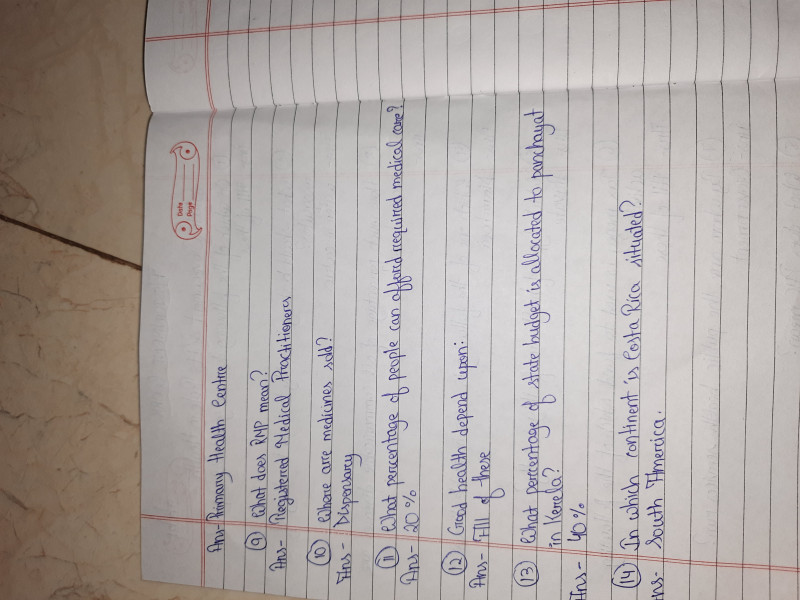 Date
Page
Ans- Primary Health Centre
(9) What does RMP mean?
Ans- Registered Medical Practitioners
(10) Where are medicines sold?
Ans- Dispensary
(11) What percentage of people can afford required medical care?
Ans- 20%
(12) Good health depend upon:
Ans- All of these
(13) What percentage of state budget is allocated to panchayat
in Kerela?
Ans- 40%
(14) In which continent is Costa Rica situated?
Ans- South America.